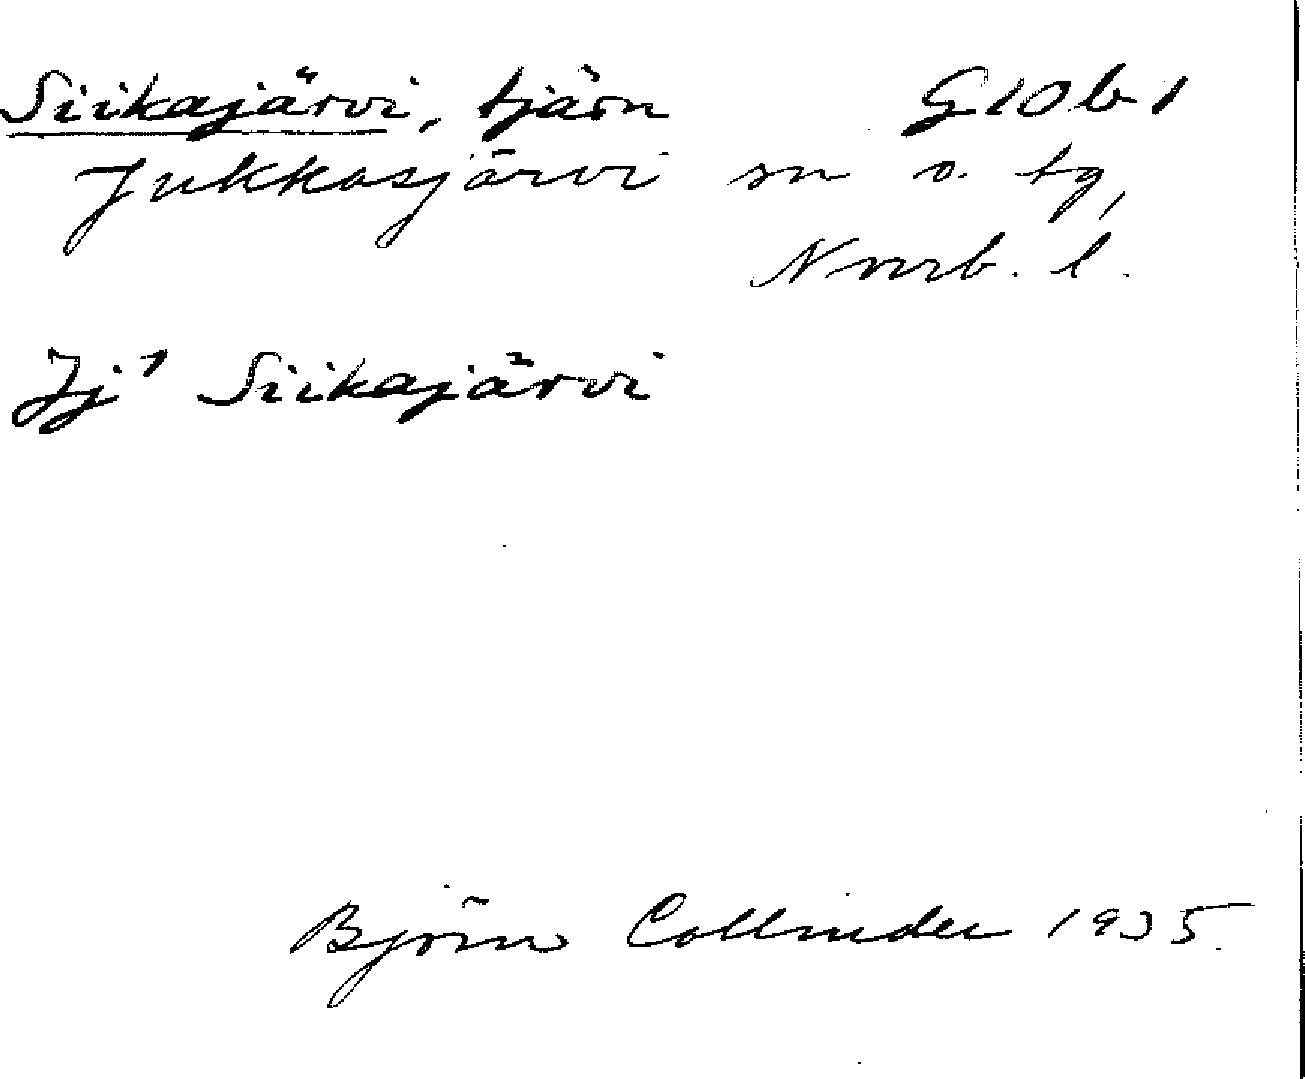 Siikajärvi, tjärn G10b1
Jukkasjärvi sn o. tg,
Norrb. l.
Jj¹ Siikajärvi
Björn Collinder 1935.